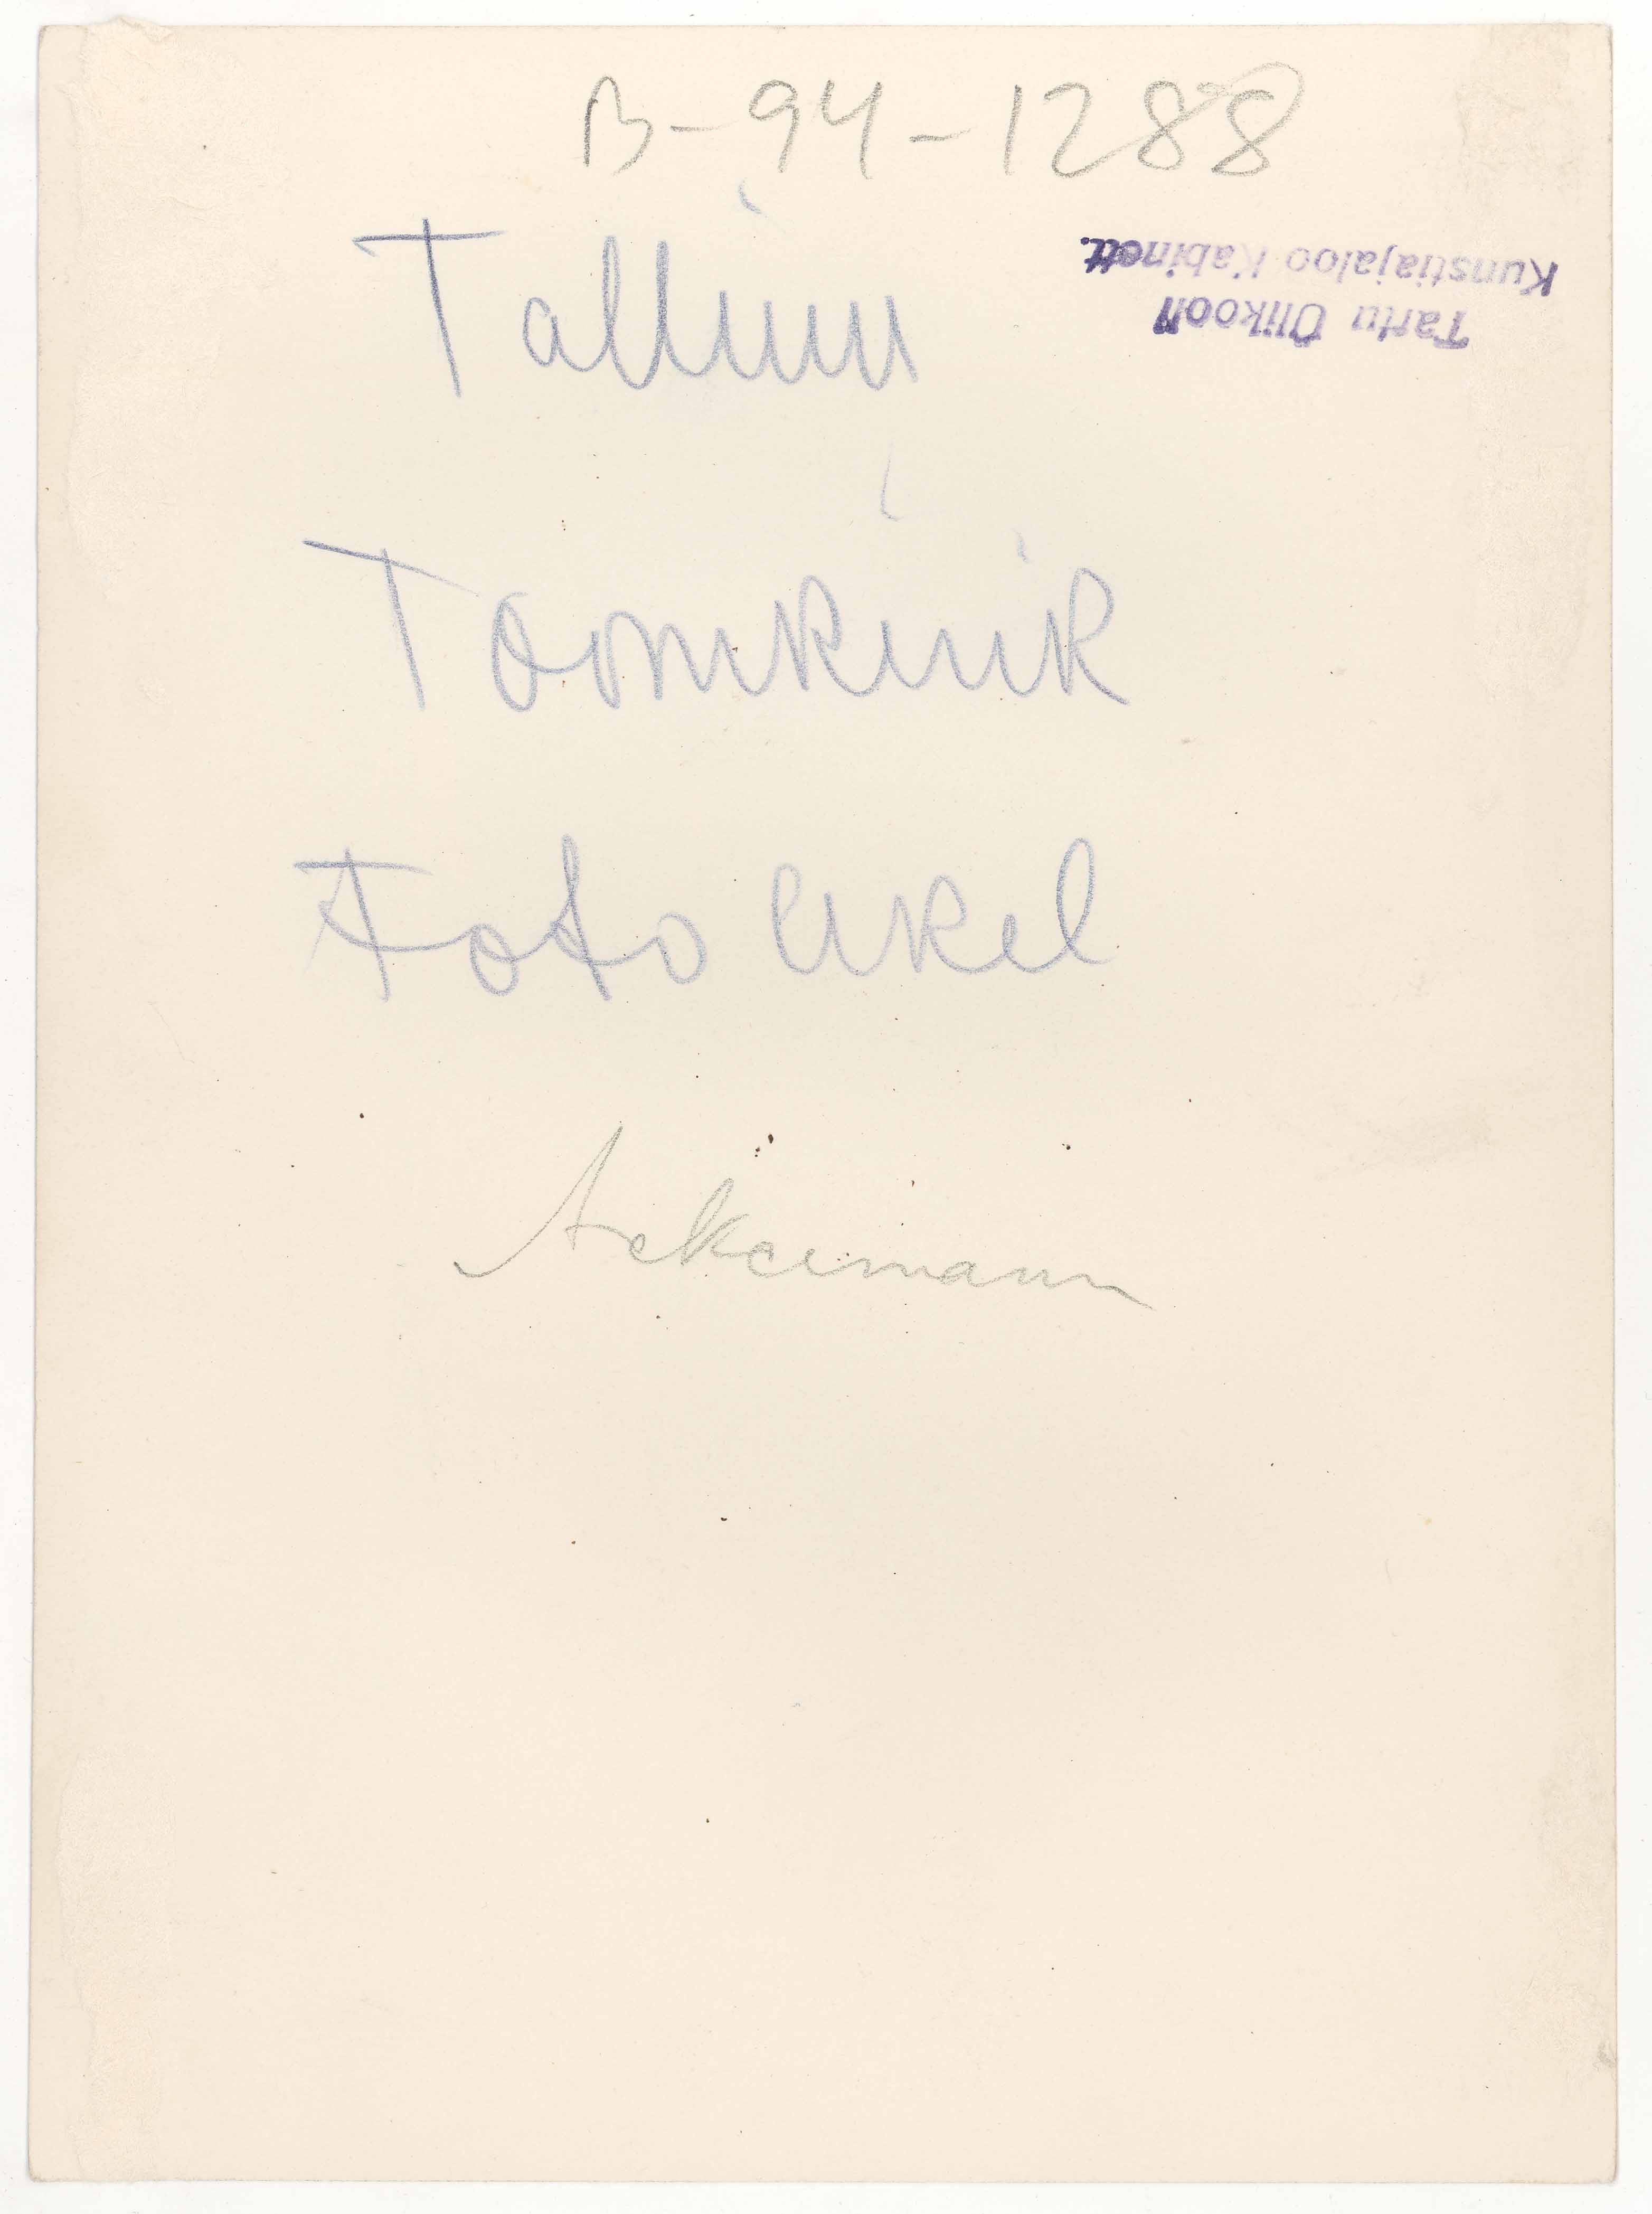 B-94-1288
Tartu Ülikool
Kunstiajaloo Kabinett.
Tallinn
Toomkirik
Foto Ukel
Ackermann